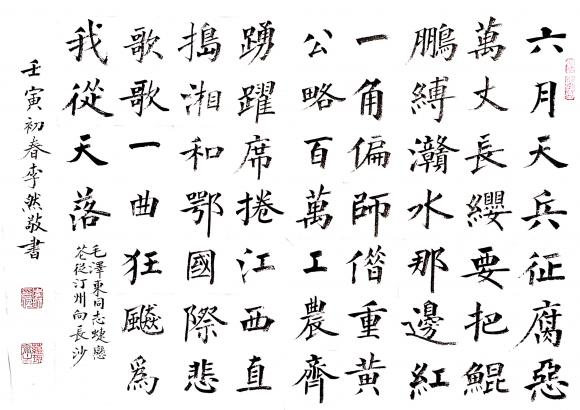 六月天兵征腐惡
萬丈長纓要把鯤
鵬縛贛水那邊紅
一角偏師僣重黃
公略百萬工農齊
踴躍席捲江西直
搗湘和鄂國際悲
歌歌一曲狂飈為
我從天落
毛澤東同志蜨戀
花從汀州向長沙
壬寅初春李然敬書